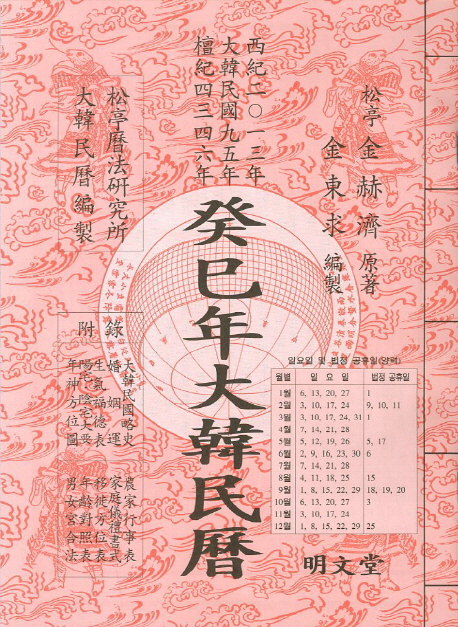 西紀二〇一三年
大韓民國九五年
檀紀四三四六年
松亭 金赫濟 原著
金東求 編製
松亭曆法研究所
大韓民曆編製
癸巳年大韓民曆
附錄
大韓民國略史
婚姻運
生氣福德表
陽宅陰宅大要
年神方位圖
農家行事表
家庭儀禮書式
移徙方位表
年齡對照表
男女宮合法
일요일 및 법정 공휴일(양력)
월별 일 요 일 법정 공휴일
1월 6, 13, 20, 27 1
2월 3, 10, 17, 24 9, 10, 11
3월 3, 10, 17, 24, 31 1
4월 7, 14, 21, 28
5월 5, 12, 19, 26 5, 17
6월 2, 9, 16, 23, 30 6
7월 7, 14, 21, 28
8월 4, 11, 18, 25 15
9월 1, 8, 15, 22, 29 18, 19, 20
10월 6, 13, 20, 27 3
11월 3, 10, 17, 24
12월 1, 8, 15, 22, 29 25
明文堂